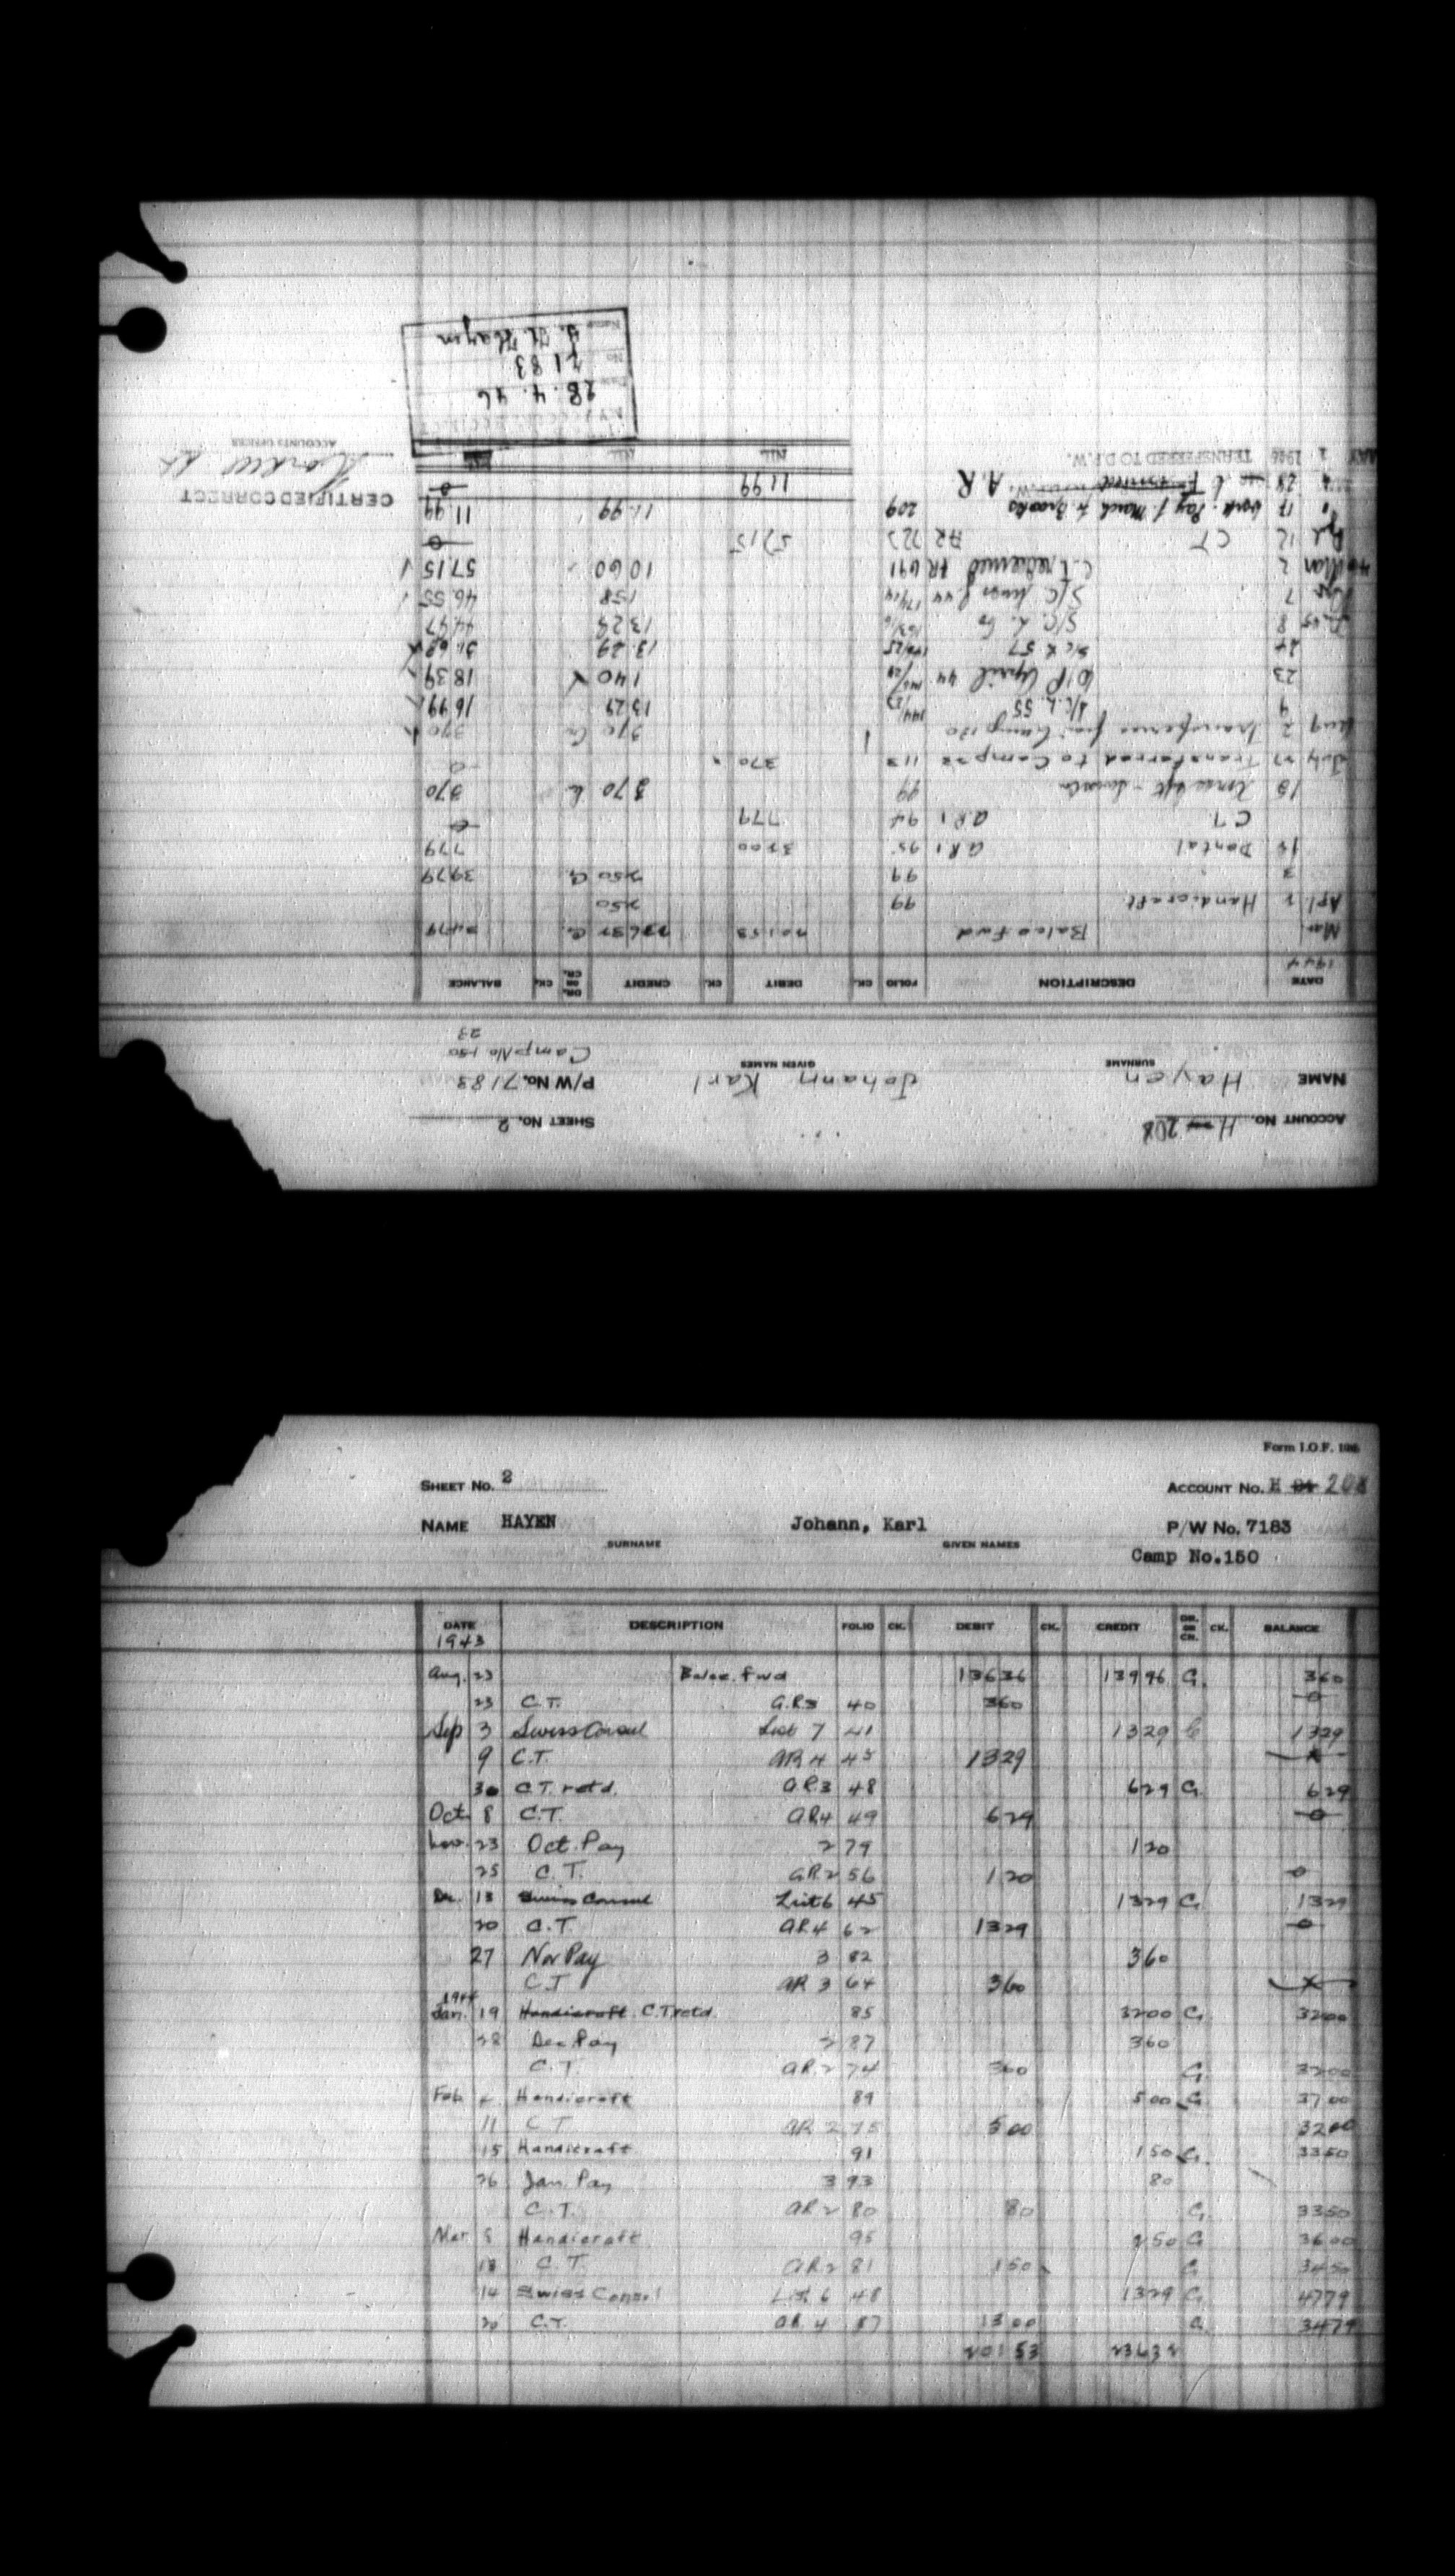 ACCOUNT NO. H 208
SHEET NO. 2
NAME Hayen Johann Karl P/W No. 7183
SURNAME GIVEN NAMES
Camp No. 150
23
DATE DESCRIPTION FOLIO CK. DEBIT CK. CREDIT DR. OR CR. CK. BALANCE
1944
Mar Balce Fwd 20153 23632 Cr. 3479
Apl. 2 Handicraft 99 250
3 99 250 Cr. 3979
15 Dental A.R.1 95 3200 779
C T A.R.1 94 779 0
18 99 370 Cr 370
July 27 Transferred to Camp 23 113 370 0
Aug 2 Transferred from Camp 130 370 Cr 370
9 S/C. L. 55 144/27 13 29 16.99
23 D/P April 44 146/29 1 40 18.39
24 S/C L 57 13.29 31.68
Jan 45 8 S/C. L. 60 163/6 13 29 44.97
Apr 7 S/C 44 174/14 1 58 46.55
46 Mar 2 C.T. redeemed AR 691 10 60 57.15
Apl 12 C T AR 723 57 15 0
" 17 Work Pay f. March f. Brooks 209 11.99 11.99
" 28 A.R. 11 99 0
MAY 1 1946 TRANSFERRED TO D.P.W. NIL NIL NIL
CERTIFIED CORRECT
ACCOUNTS OFFICER
28. 4. 46
No 7183
Name J. K. Hayen
Form I.O.F. 106
SHEET NO. 2 ACCOUNT NO. H 91 208
NAME HAYEN Johann, Karl P/W No. 7183
SURNAME GIVEN NAMES
Camp No.150
DATE DESCRIPTION FOLIO CK. DEBIT CK. CREDIT DR. OR CR. CK. BALANCE
1943
Aug. 23 Balce. fwd 13636 13996 Cr. 360
23 C.T. A.R.3 40 360 0
Sep 3 Swiss Consul List 7 41 1329 Cr 1329
9 C.T. AR 4 45 1329
30 C.T. retd. A.R.3 48 629 Cr. 629
Oct 8 C.T. AR4 49 629 0
Nov. 23 Oct. Pay 2 79 120
25 C.T. A.R.2 56 120 0
Dec. 13 Swiss Consul List 6 45 1329 Cr. 1329
20 C.T. AR4 62 1329 0
27 Nov Pay 3 82 360
C.T AR 3 64 360
1944
Jan. 19 Handicraft C.T. retd. 85 3200 Cr. 3200
28 Dec Pay 2 87 360
C.T. AR.2 74 360 Cr. 3200
Feb. 2 Handicraft 89 500 Cr. 3700
11 C T AR 2 75 500 3200
15 Handicraft 91 150 Cr. 3350
26 Jan. Pay 3 93 80
C.T. AR 2 80 80 Cr. 3350
Mar. 8 Handicraft 95 250 Cr 3600
13 C.T. AR2 81 150 Cr 3450
14 Swiss Consul List 6 48 1329 Cr. 4779
20 C.T. AR. 4 87 1300 Cr. 3479
20153 23632